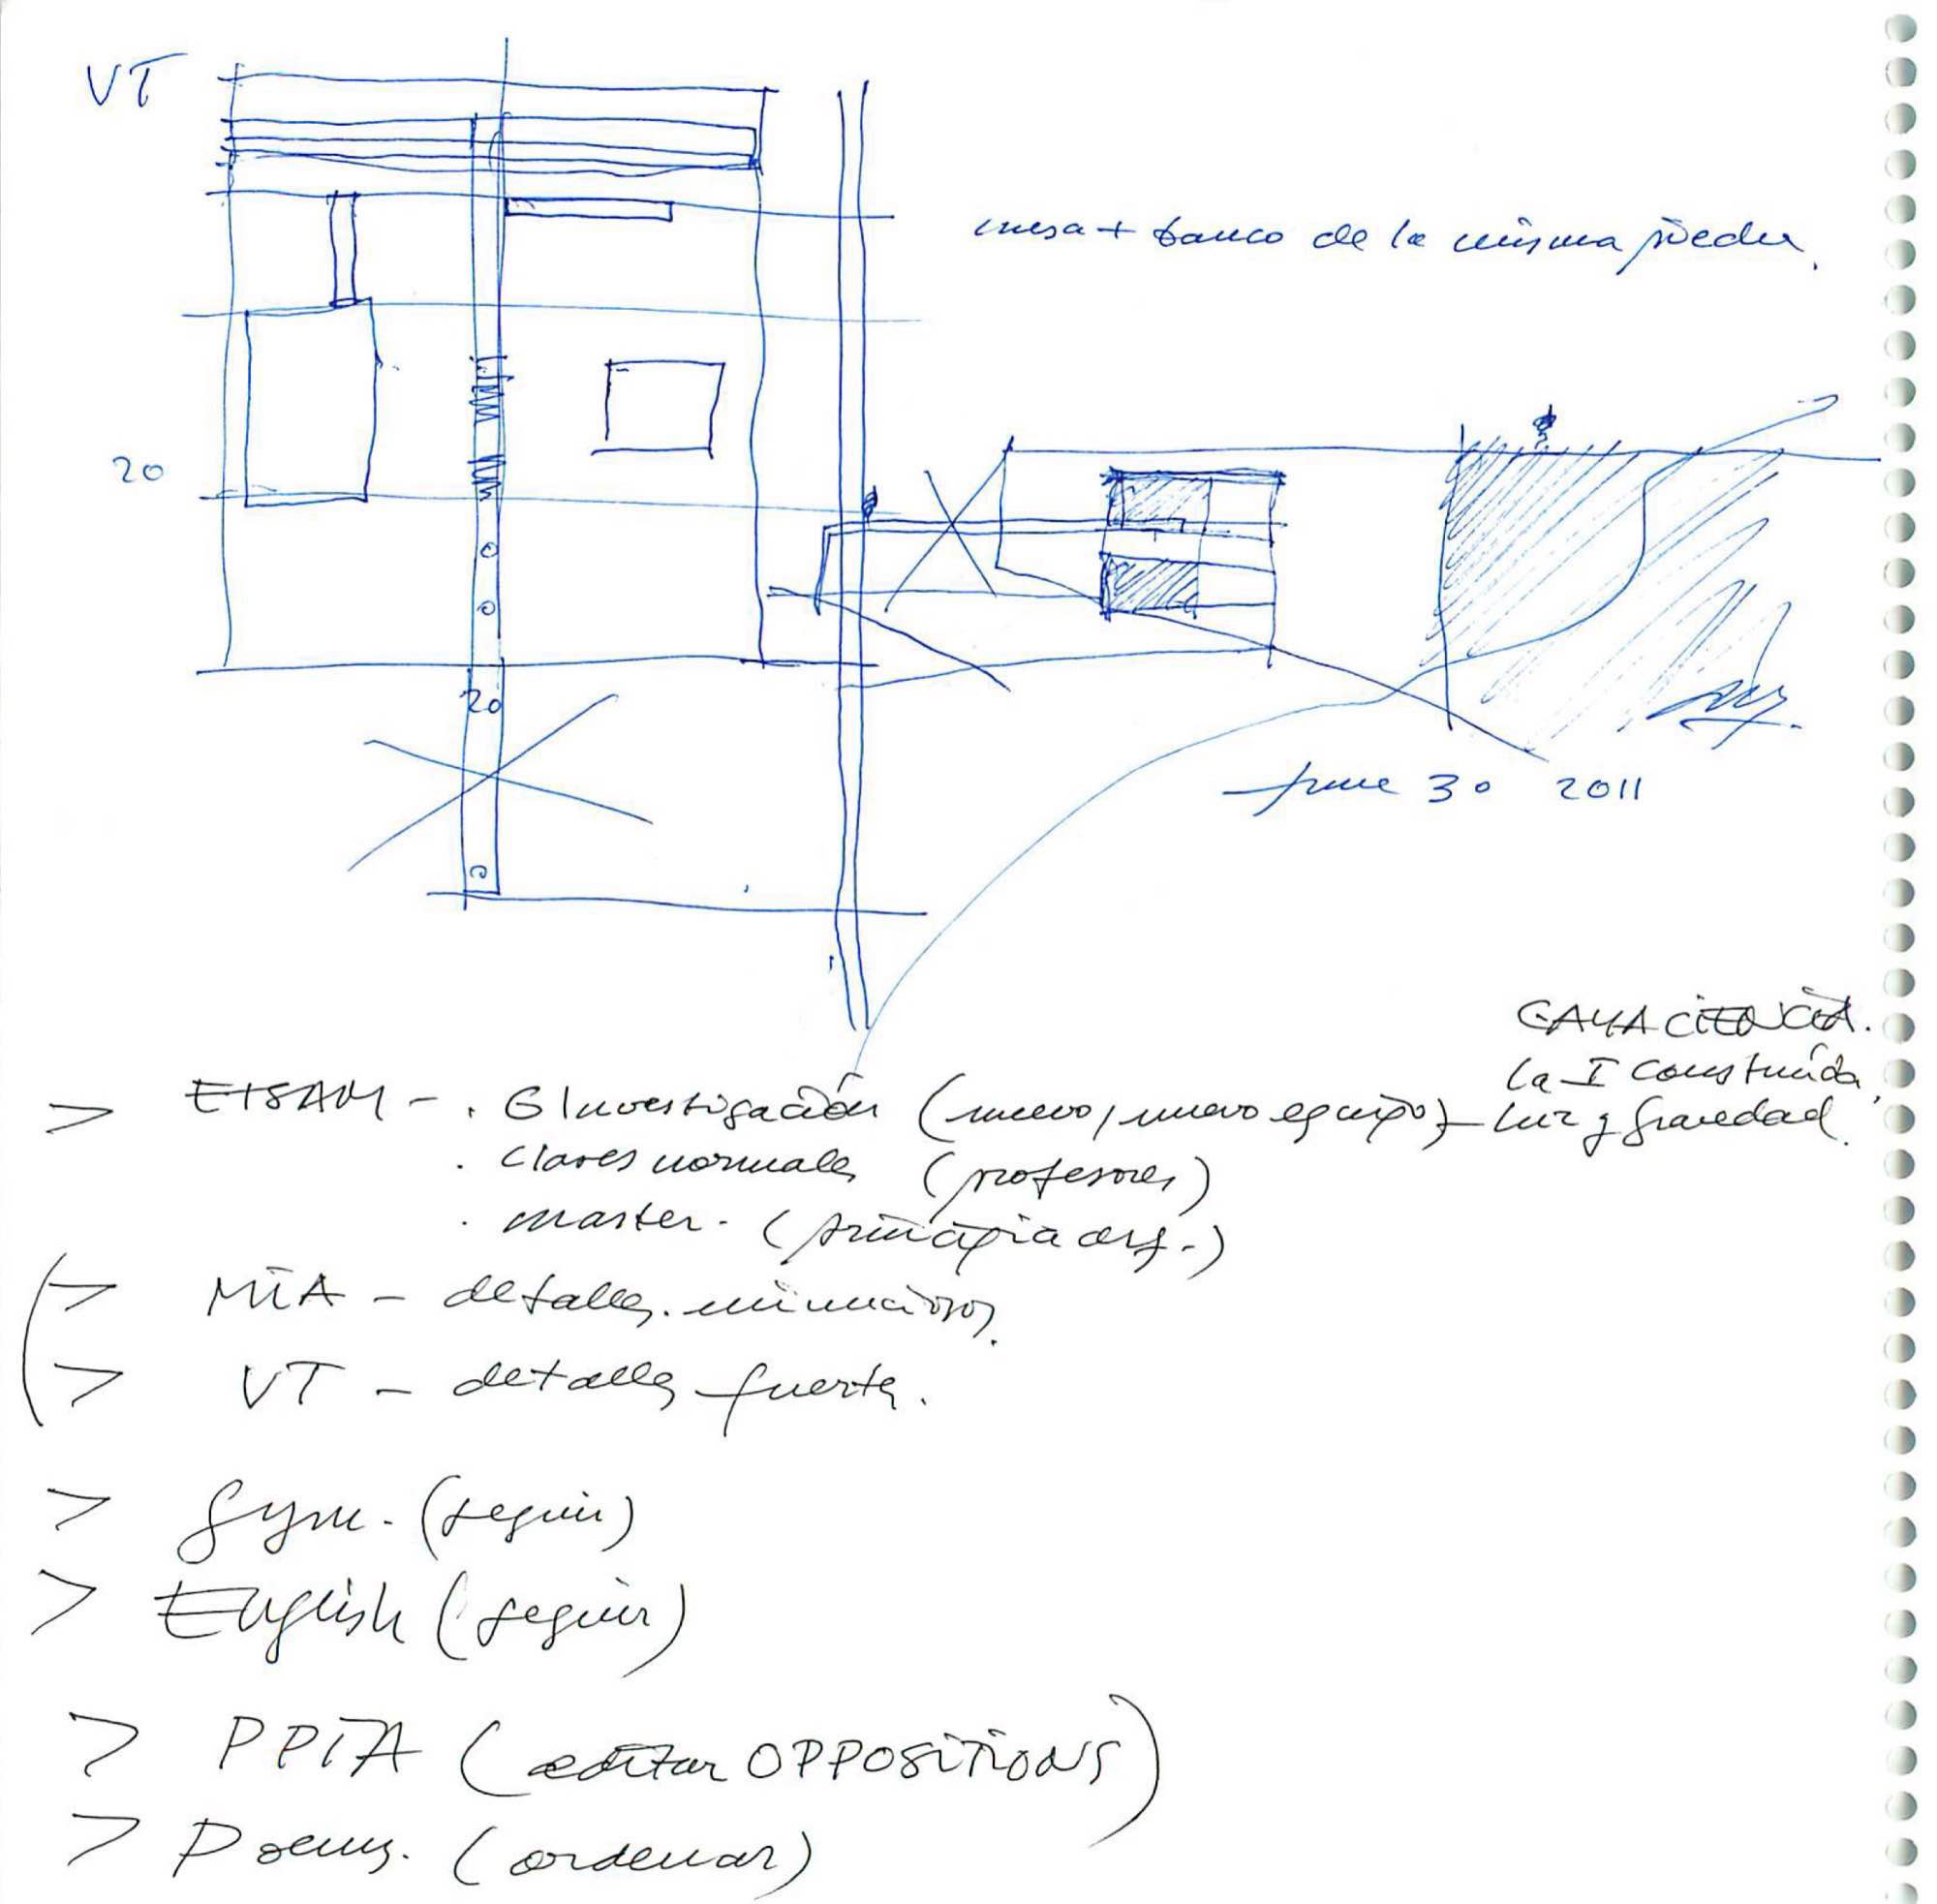 VT
mesa + banco de la misma piedra.
20
20
June 30 2011
GAYA CIENCIA.
la I construída,
> ETSAM - . G Investigación (nuevo, nuevo equipo) - luz y gravedad.
. clases normales (profesores)
. master. (principia arq.)
> MIA - detalles minuciosos.
> VT - detalles fuertes.
> Gym. (seguir)
> English (seguir)
> PPIA (editar OPPOSITIONS)
> Poems. (ordenar)